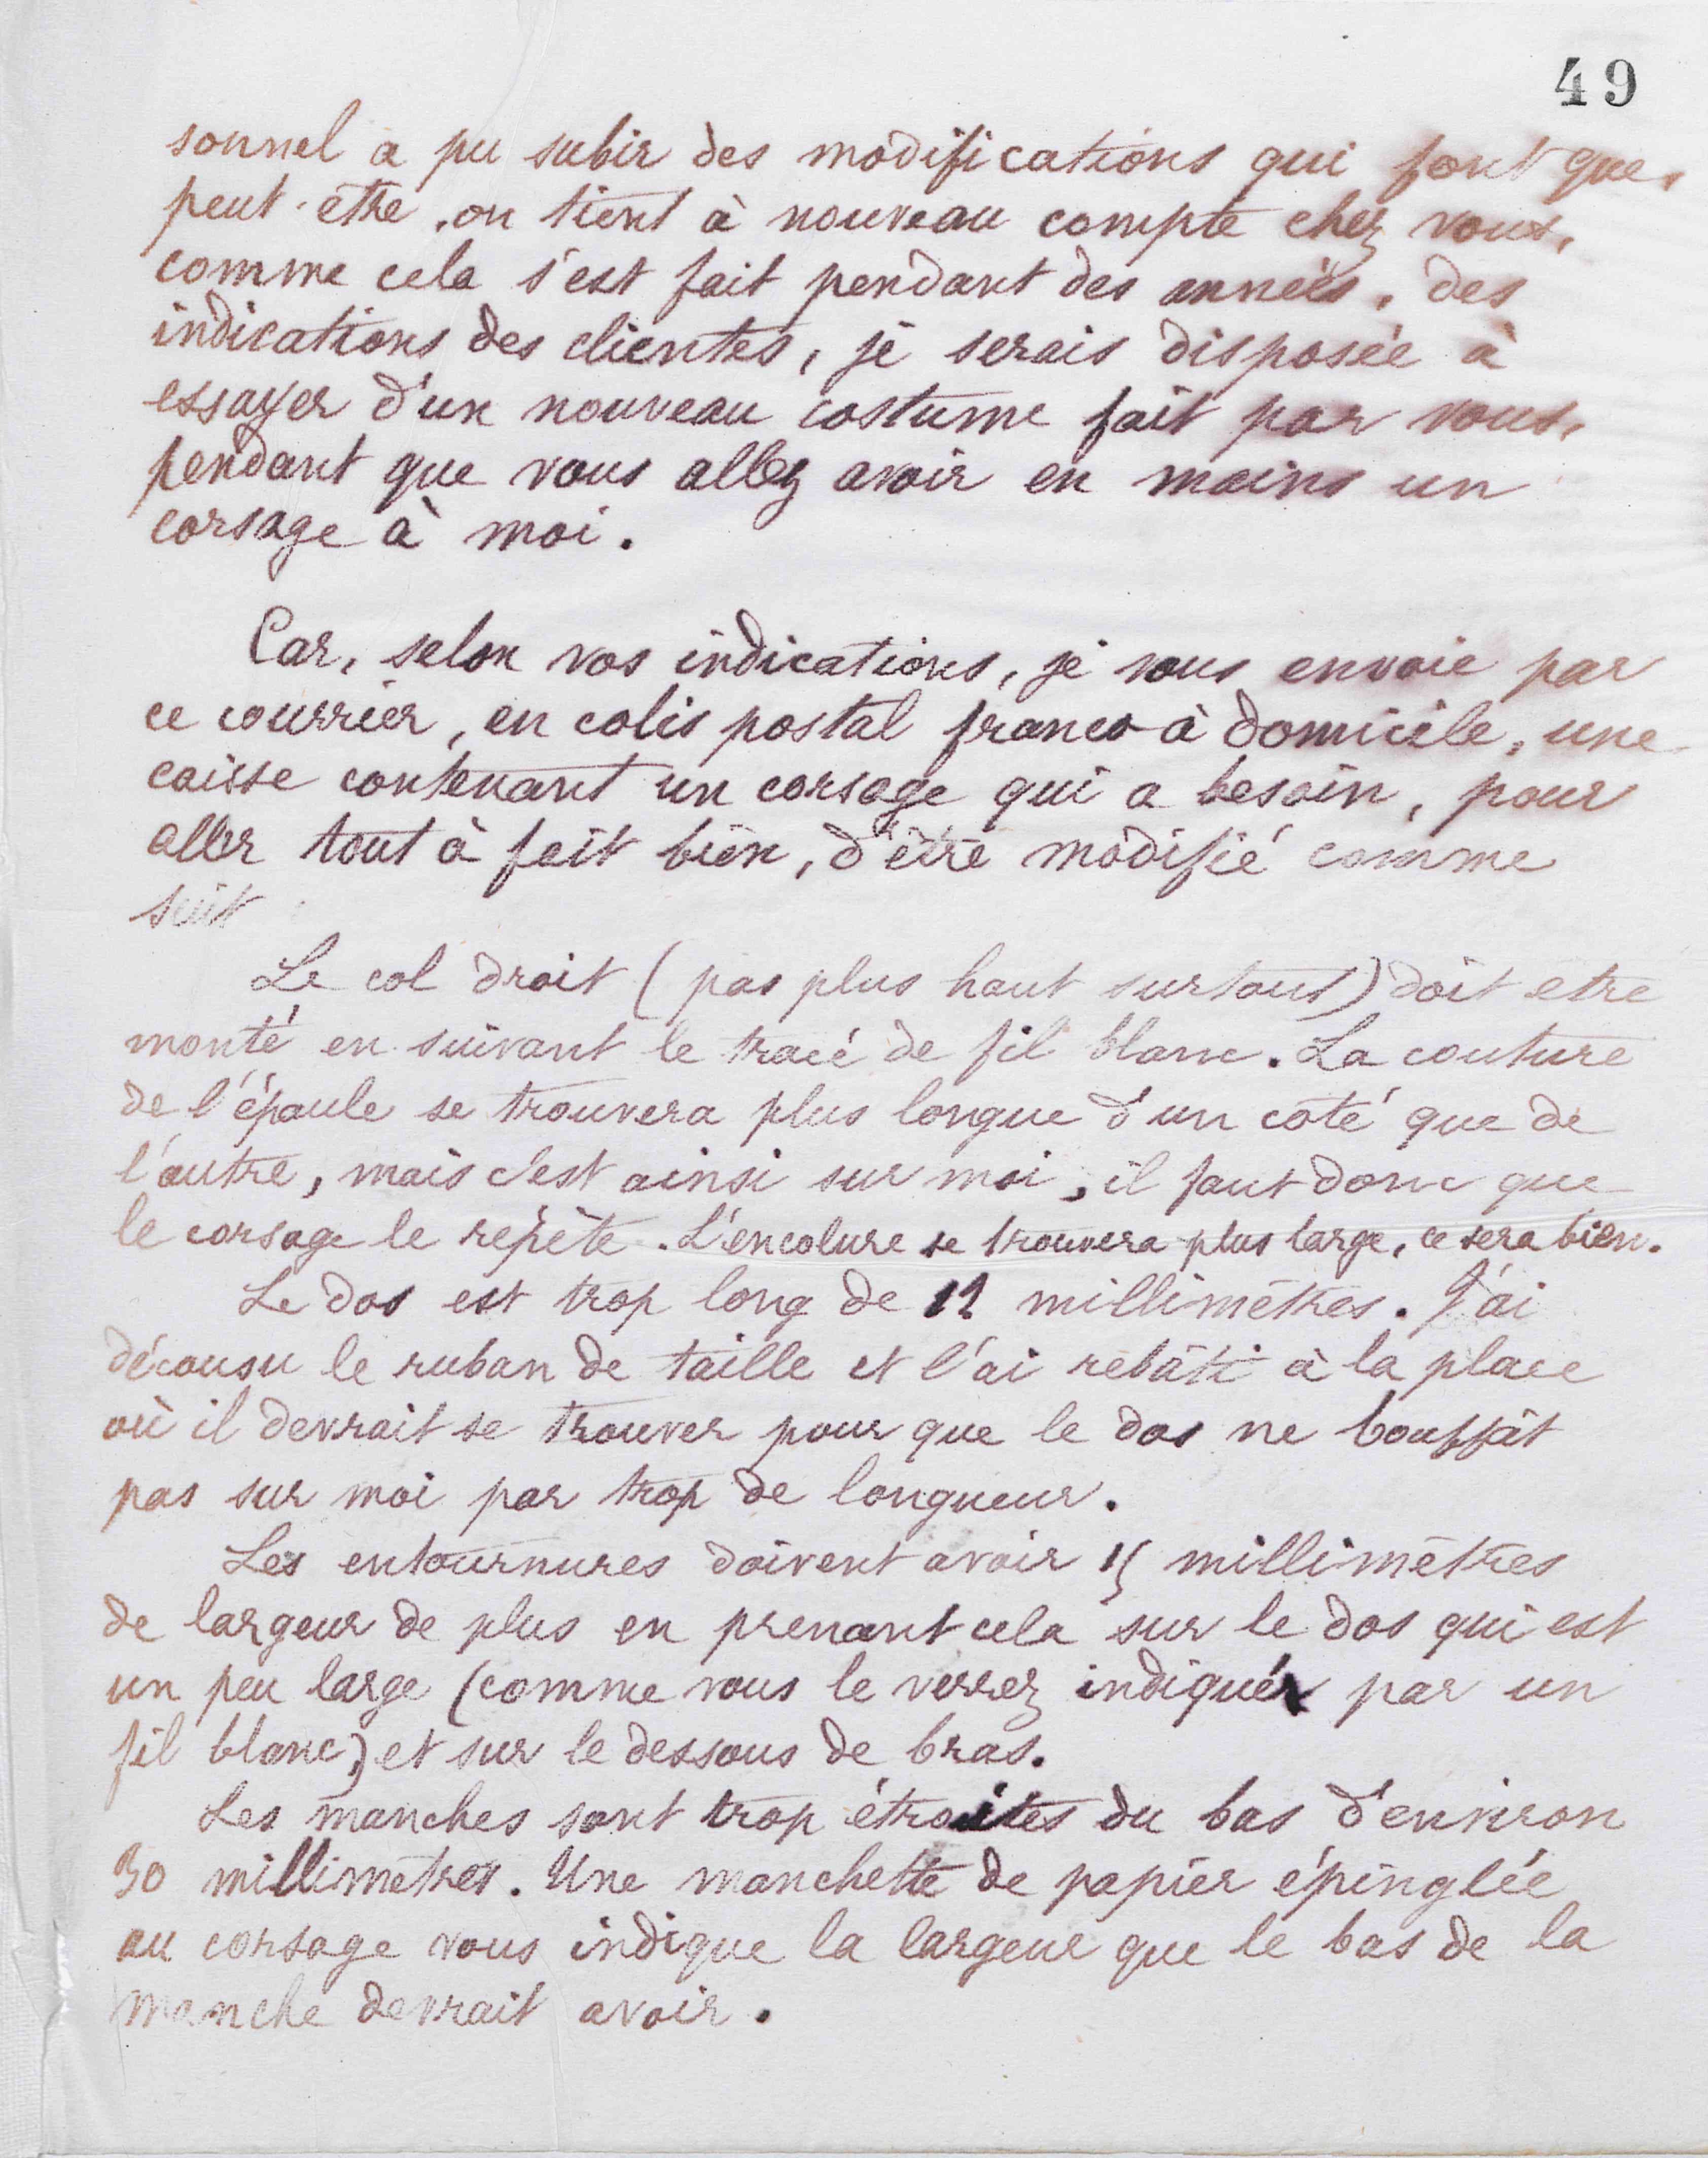 49
sonnel a pu subir des modifications qui font que,
peut-être, on tient à nouveau compte chez vous,
comme cela s'est fait pendant des années, des
indications des clientes, je serais disposée à
essayer d'un nouveau costume fait par vous,
pendant que vous allez avoir en mains un
corsage à moi.
Car, selon vos indications, je vous envoie par
ce courrier, en colis postal franco à domicile, une
caisse contenant un corsage qui a besoin, pour
aller tout à fait bien, d'être modifié comme
suit :
Le col droit (pas plus haut surtout) doit etre
monté en suivant le tracé de fil blanc. La couture
de l'épaule se trouvera plus longue d'un coté que de
l'autre, mais c'est ainsi sur moi, il faut donc que
le corsage le répète. L'encolure se trouvera plus large, ce sera bien.
Le dos est trop long de 12 millimètres. J'ai
décousu le ruban de taille et l'ai rebâti à la place
où il devrait se trouver pour que le dos ne bouffât
pas sur moi par trop de longueur.
Les entournures doivent avoir 15 millimètres
de largeur de plus en prenant cela sur le dos qui est
un peu large (comme vous le verrez indiqué par un
fil blanc) et sur le dessous de bras.
Les manches sont trop étroites du bas d'environ
30 millimètres. Une manchette de papier épinglée
au corsage vous indique la largeur que le bas de la
manche devrait avoir.